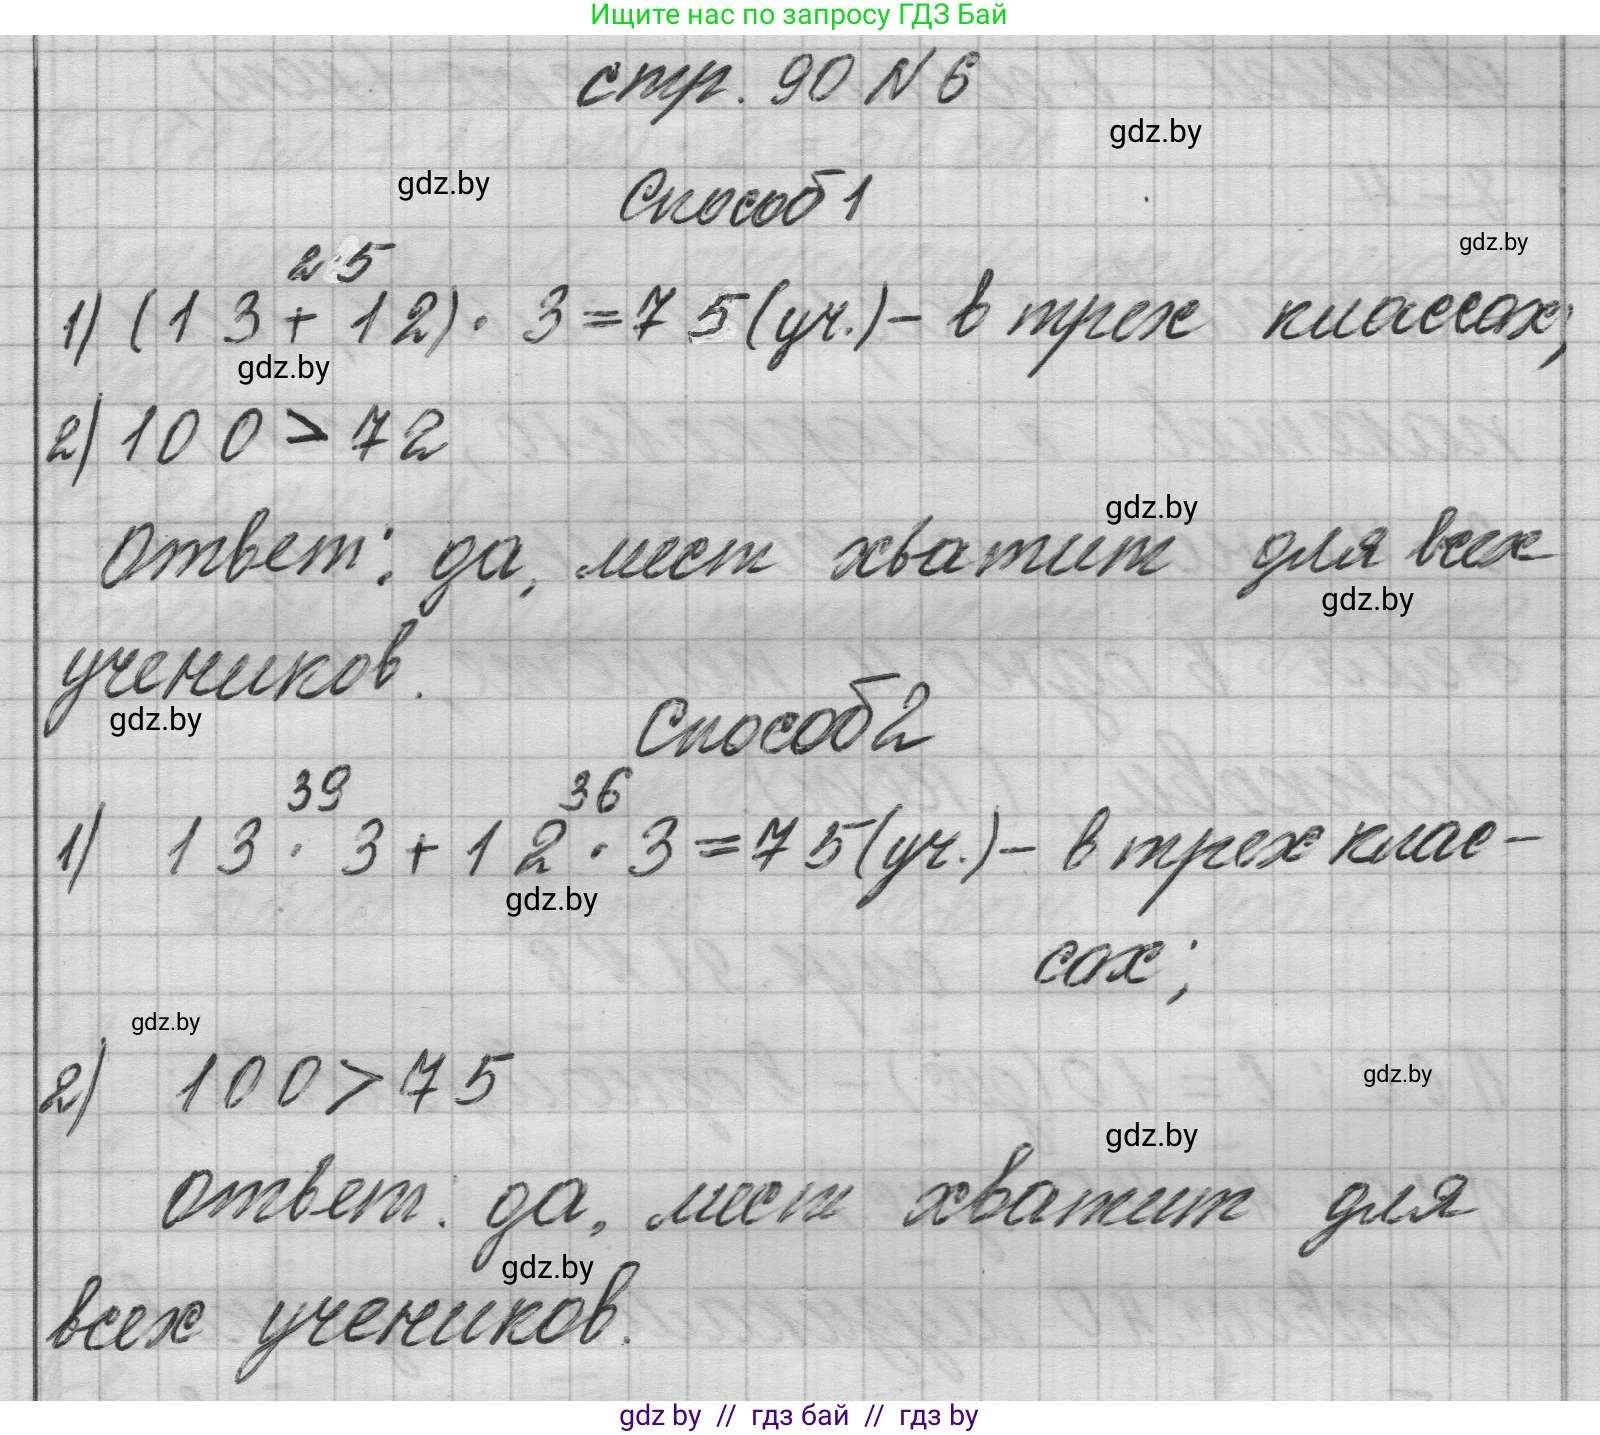 Ищите нас по запросу ГДЗ Бай
стр. 90 № 6
gdz.by
gdz.by
Способ 1
gdz.by
25
1) (13+12)·3=75(уч.)– в трех классах;
gdz.by
2) 100>72
gdz.by
Ответ: да, мест хватит для всех
gdz.by
учеников.
gdz.by
Способ 2
39 36
1) 13·3+12·3=75(уч.)– в трех клас-
gdz.by
сах;
gdz.by
2) 100>75
gdz.by
gdz.by
Ответ: да, мест хватит для
gdz.by
всех учеников.
gdz by // гдз бай // гдз by